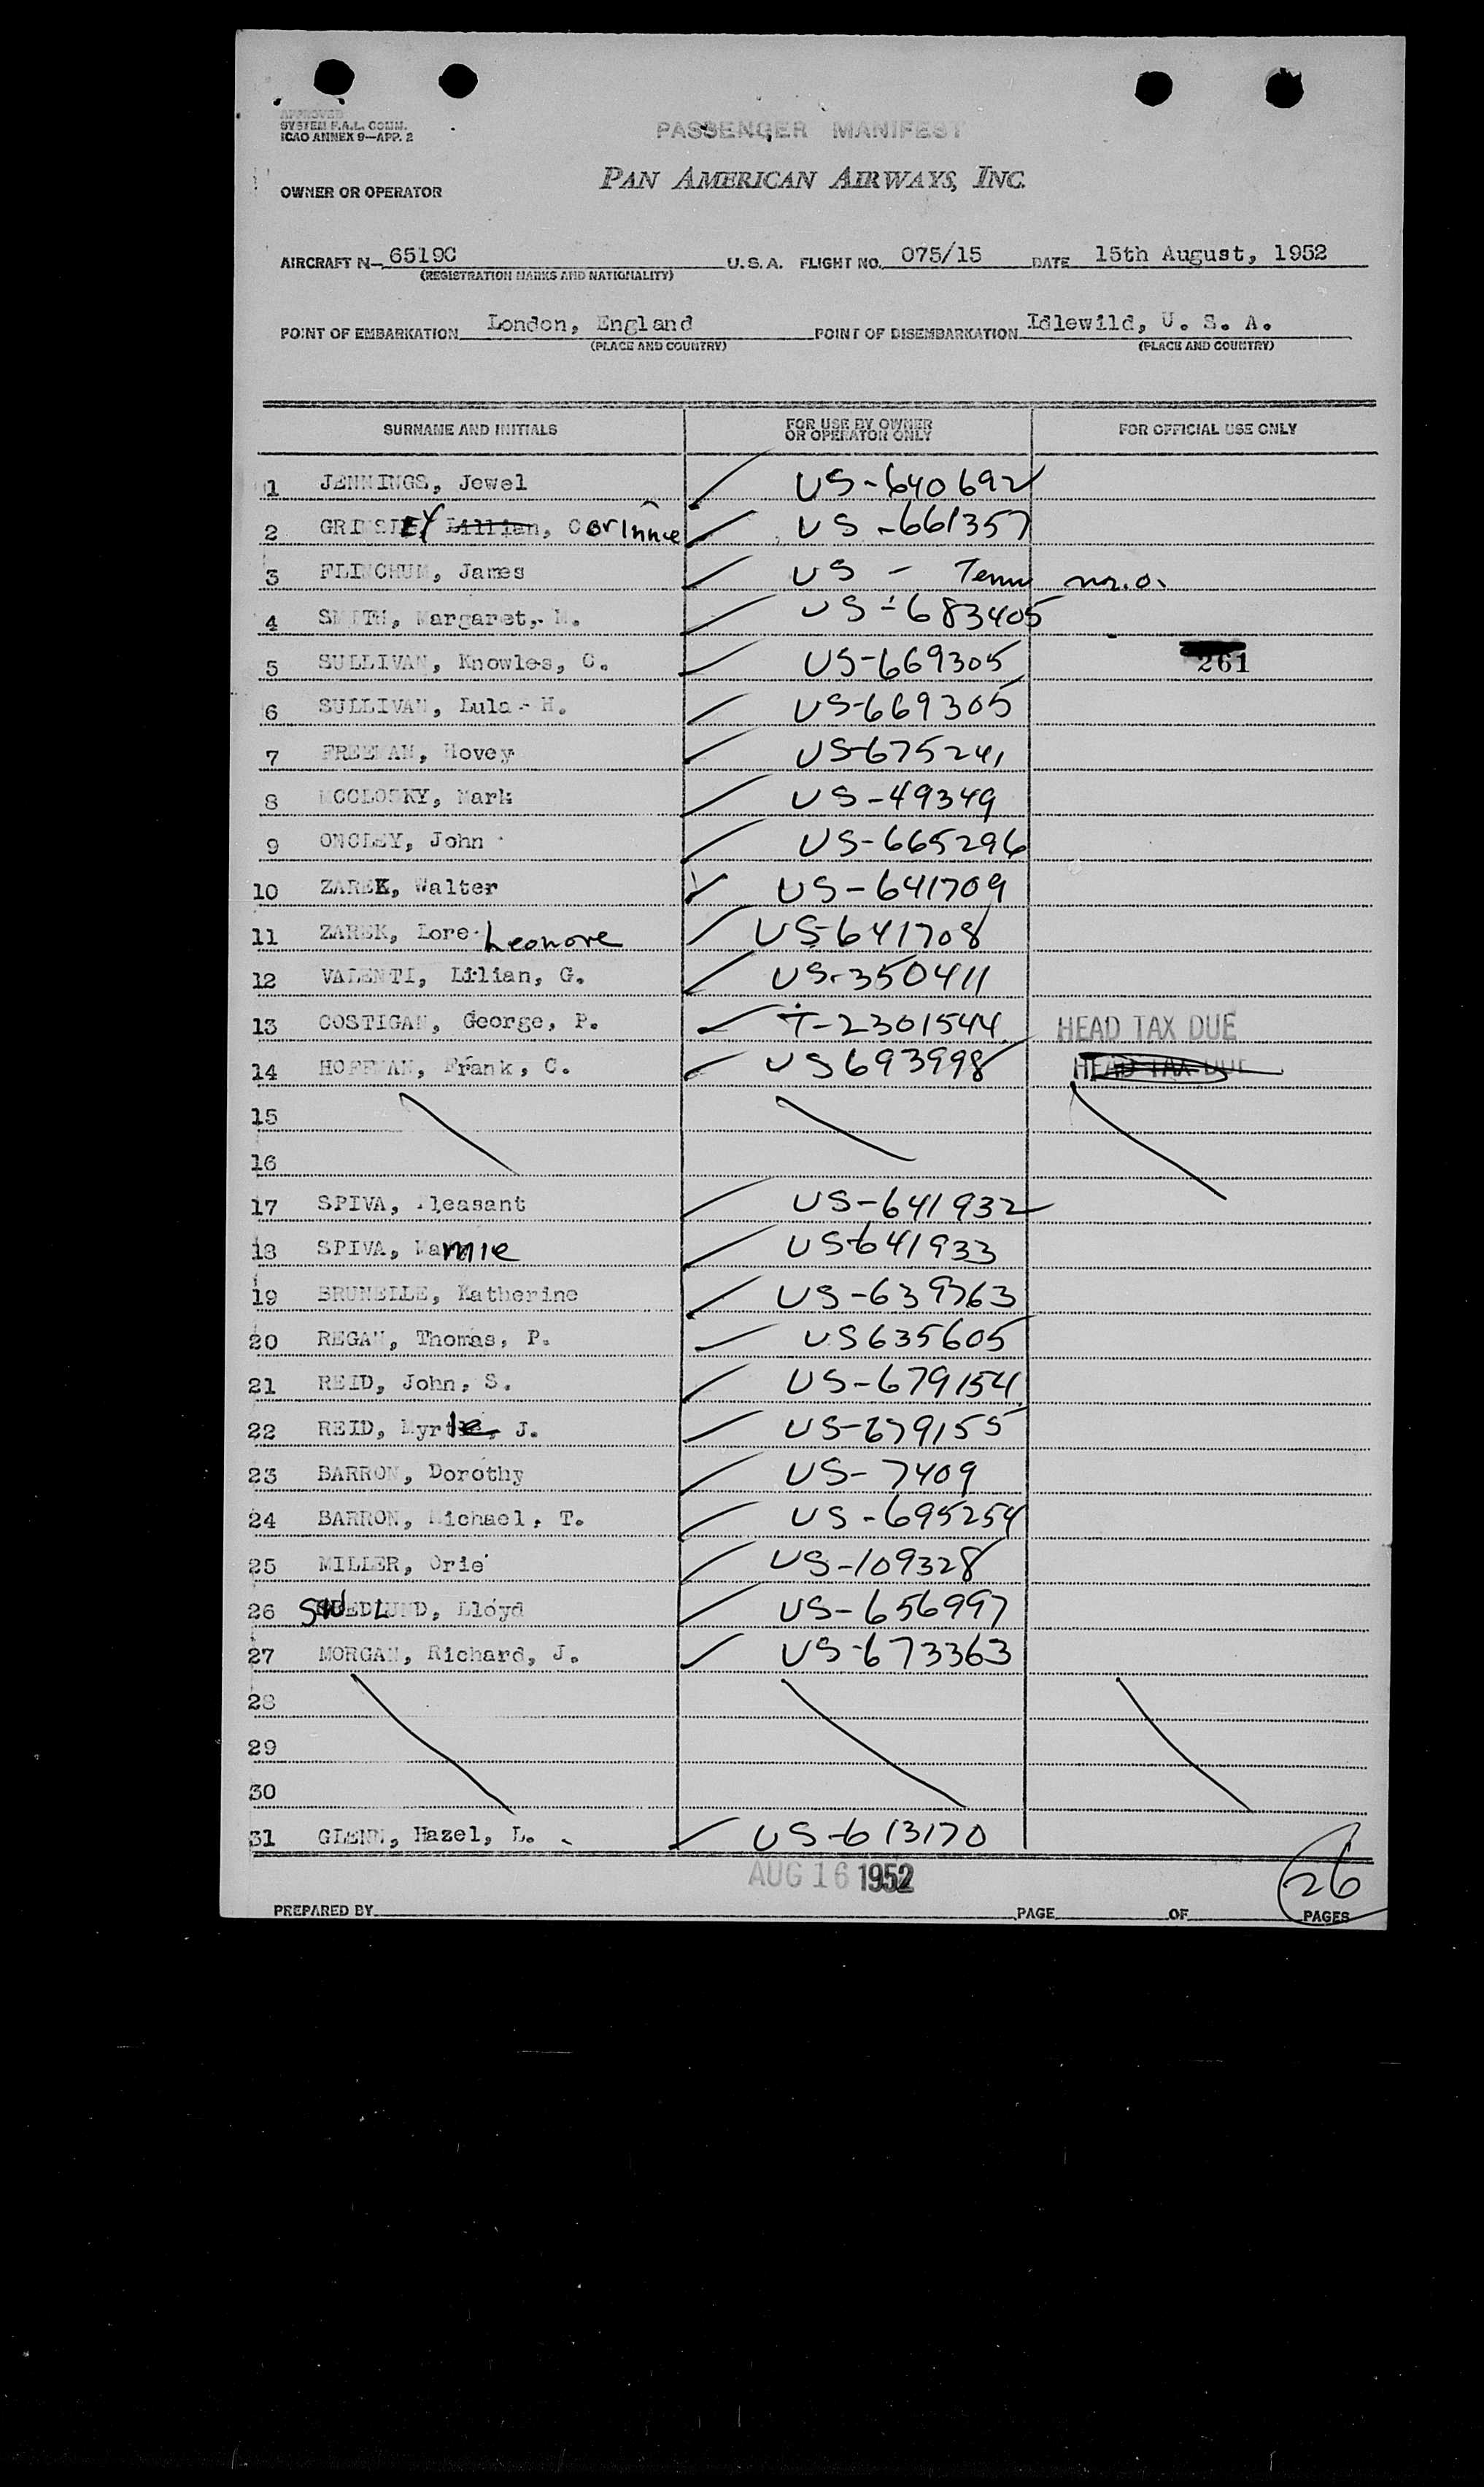 APPROVED
SYSTEM F.A.L. COMM.
ICAO ANNEX 9—APP. 2
PASSENGER MANIFEST
OWNER OR OPERATOR PAN AMERICAN AIRWAYS, INC.
AIRCRAFT N— 6519C U.S.A. FLIGHT NO. 075/15 DATE 15th August, 1952
(REGISTRATION MARKS AND NATIONALITY)
POINT OF EMBARKATION London, England POINT OF DISEMBARKATION Idlewild, U. S. A.
(PLACE AND COUNTRY) (PLACE AND COUNTRY)
SURNAME AND INITIALS FOR USE BY OWNER OR OPERATOR ONLY FOR OFFICIAL USE ONLY
1 JENNINGS, Jewel US-640692
2 GRIMSLEY Lillian, Corinne US-661357
3 FLINCHUM, James US - m.o.
4 SMITH, Margaret, M. US-683405
5 SULLIVAN, Knowles, C. US-669305 261
6 SULLIVAN, Lula H. US-669305
7 FREEMAN, Hovey US-675241
8 MCCLOSKY, Mark US-49349
9 ONCLEY, John US-665296
10 ZAREK, Walter US-641709
11 ZAREK, Lore Leonore US-641708
12 VALENTI, Lilian, G. US-350411
13 COSTIGAN, George, P. T-2301544 HEAD TAX DUE
14 HOFFMAN, Frank, C. US 693998 HEAD TAX DUE
15
16
17 SPIVA, Pleasant US-641932
18 SPIVA, Mamie US-641933
19 BRUNELLE, Katherine US-639763
20 REGAN, Thomas, P. US 635605
21 REID, John, S. US-679154
22 REID, Myrtle, J. US-679155
23 BARRON, Dorothy US-7409
24 BARRON, Michael, T. US-695254
25 MILLER, Orie US-109328
26 SWEDLUND, Lloyd US-656997
27 MORGAN, Richard, J. US-673363
28
29
30
31 GLENN, Hazel, L. US-613170
AUG 16 1952
26
PREPARED BY PAGE OF PAGES